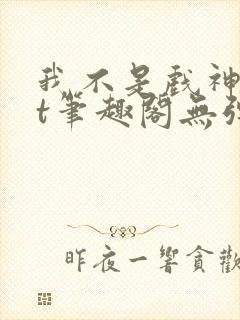 我不是戲神
t筆趣閣無弹
昨夜一響貪歡